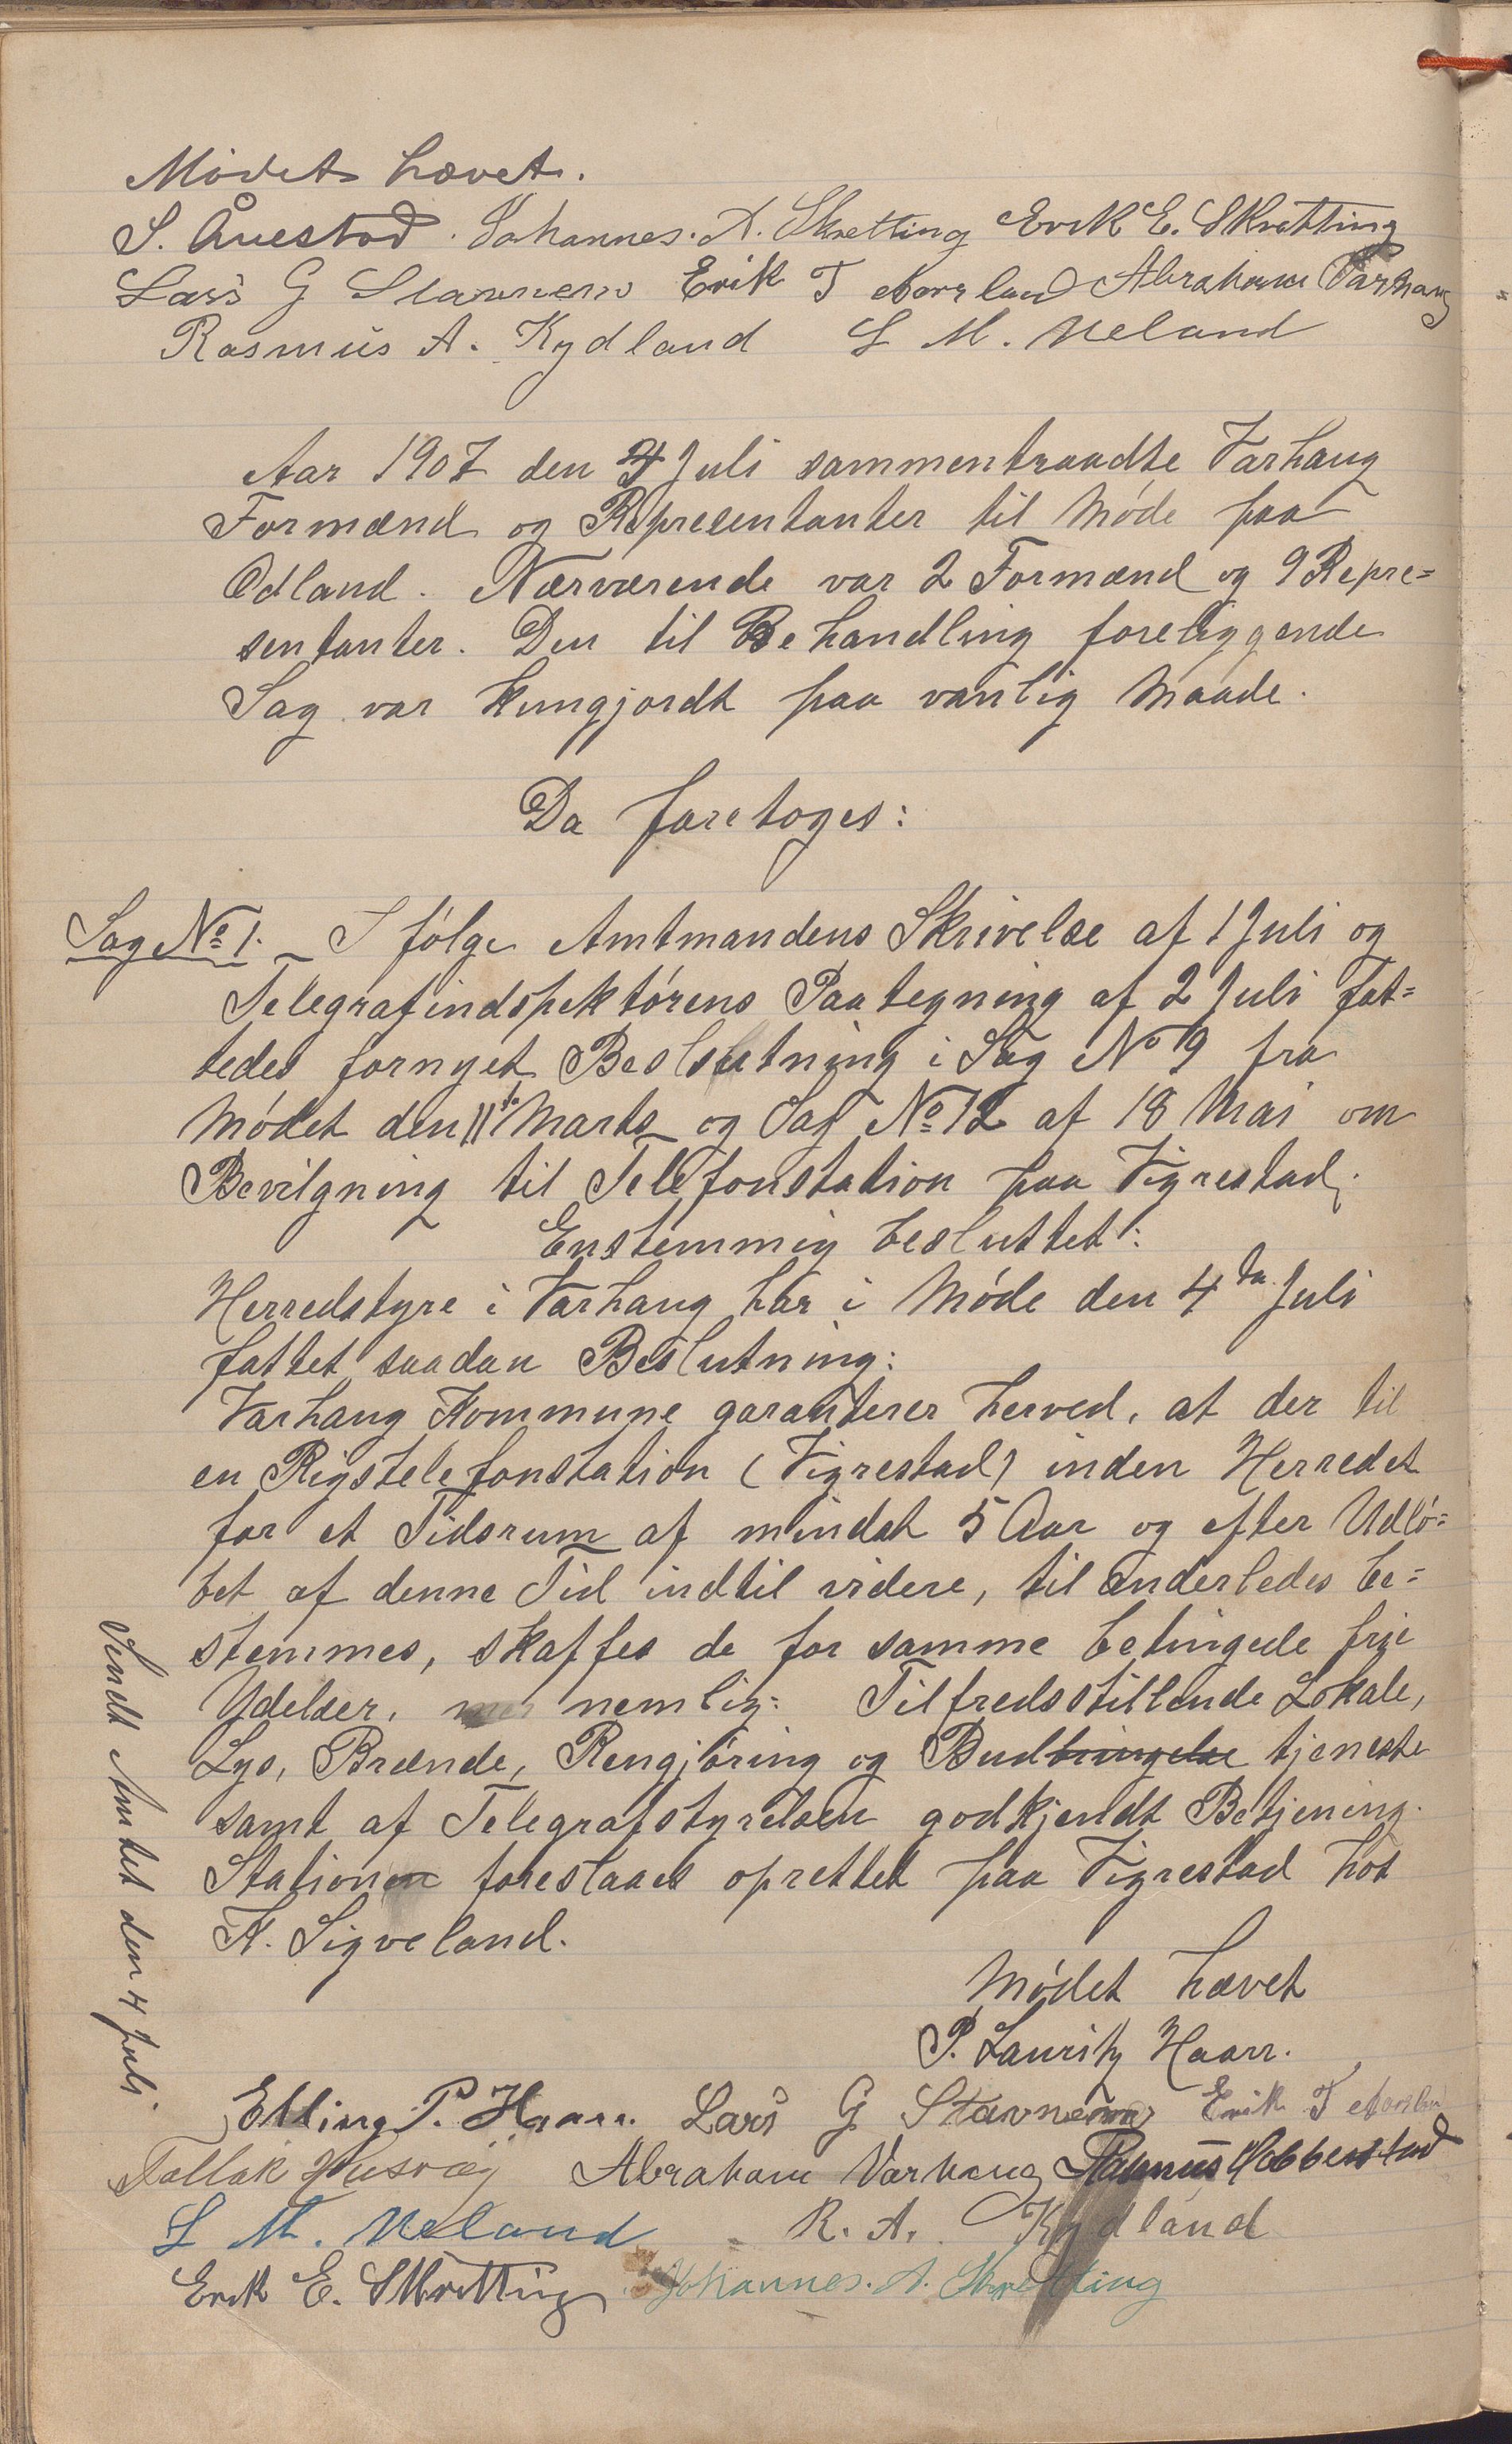 Mødet hævet.
S. Åuestad. Johannes. A. Skretting Erik E. Skretting
Lars G Stavnem Erik T Aarsland Abraham Varhaug
Rasmus A. Kydland L M. Ueland
Aar 1907 den 4 Juli sammentraadte Varhaug
Formænd og Representanter til Møde paa
Ødland. Nærværende var 2 Formænd og 9 Repre=
sentanter. Den til Behandling foreliggende
Sag var kungjordt paa vanlig Maade.
Da foretoges:
Sag No 1. I følge Amtmandens Skrivelse af 1 Juli og
Telegrafindspektørens Paategning af 2 Juli fat=
tedes fornyet Beslutning i Sag No 9 fra
Mødet den 11te Marts og Sag No 12 af 18 Mai om
Bevilgning til Telefonstation paa Vigrestad.
Enstemmig besluttet:
Herredstyre i Varhaug har i Møde den 4de Juli
fattet saadan Beslutning:
Varhaug Kommune garanterer herved, at der til
en Rigstelefonstation (Vigrestad) inden Herredet
for et Tidsrum af mindst 5 Aar og efter Udlø=
bet af denne Tid indtil videre, til anderledes be=
stemmes, skaffes de for samme betingede frie
Ydelser, nemlig: Tilfredsstillende Lokale,
Lys, Brænde, Rengjøring og Budbringelse tjeneste
samt af Telegrafstyrelsen godkjendt Betjening.
Stationen foreslaaes oprettet paa Vigrestad hos
K. Sigveland.
Mødet hævet
P. Lauritz Haarr.
Elling P. Haarr. Lars G Stavnem Erik T Aarsland
Tallak Husvæg Abraham Varhaug Rasmus Hobberstad
L M. Ueland R. A. Kydland
Erik E. Skretting Johannes. A. Skretting
Sendt Amtet den 4 Juli.